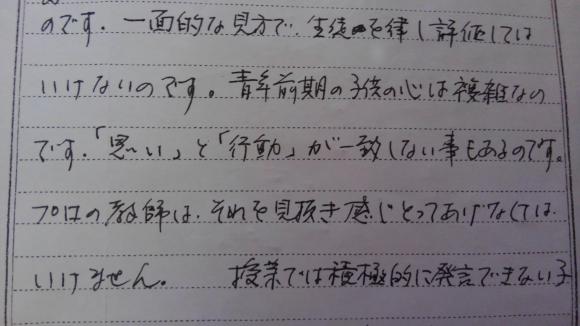 のです。一面的な見方で、生徒を律し評価しては
いけないのです。青年前期の子供の心は複雑なの
です。「思い」と「行動」が一致しない事もあるのです。
プロの教師は、それを見抜き感じとってあげなくては
いけません。　授業では積極的に発言できない子